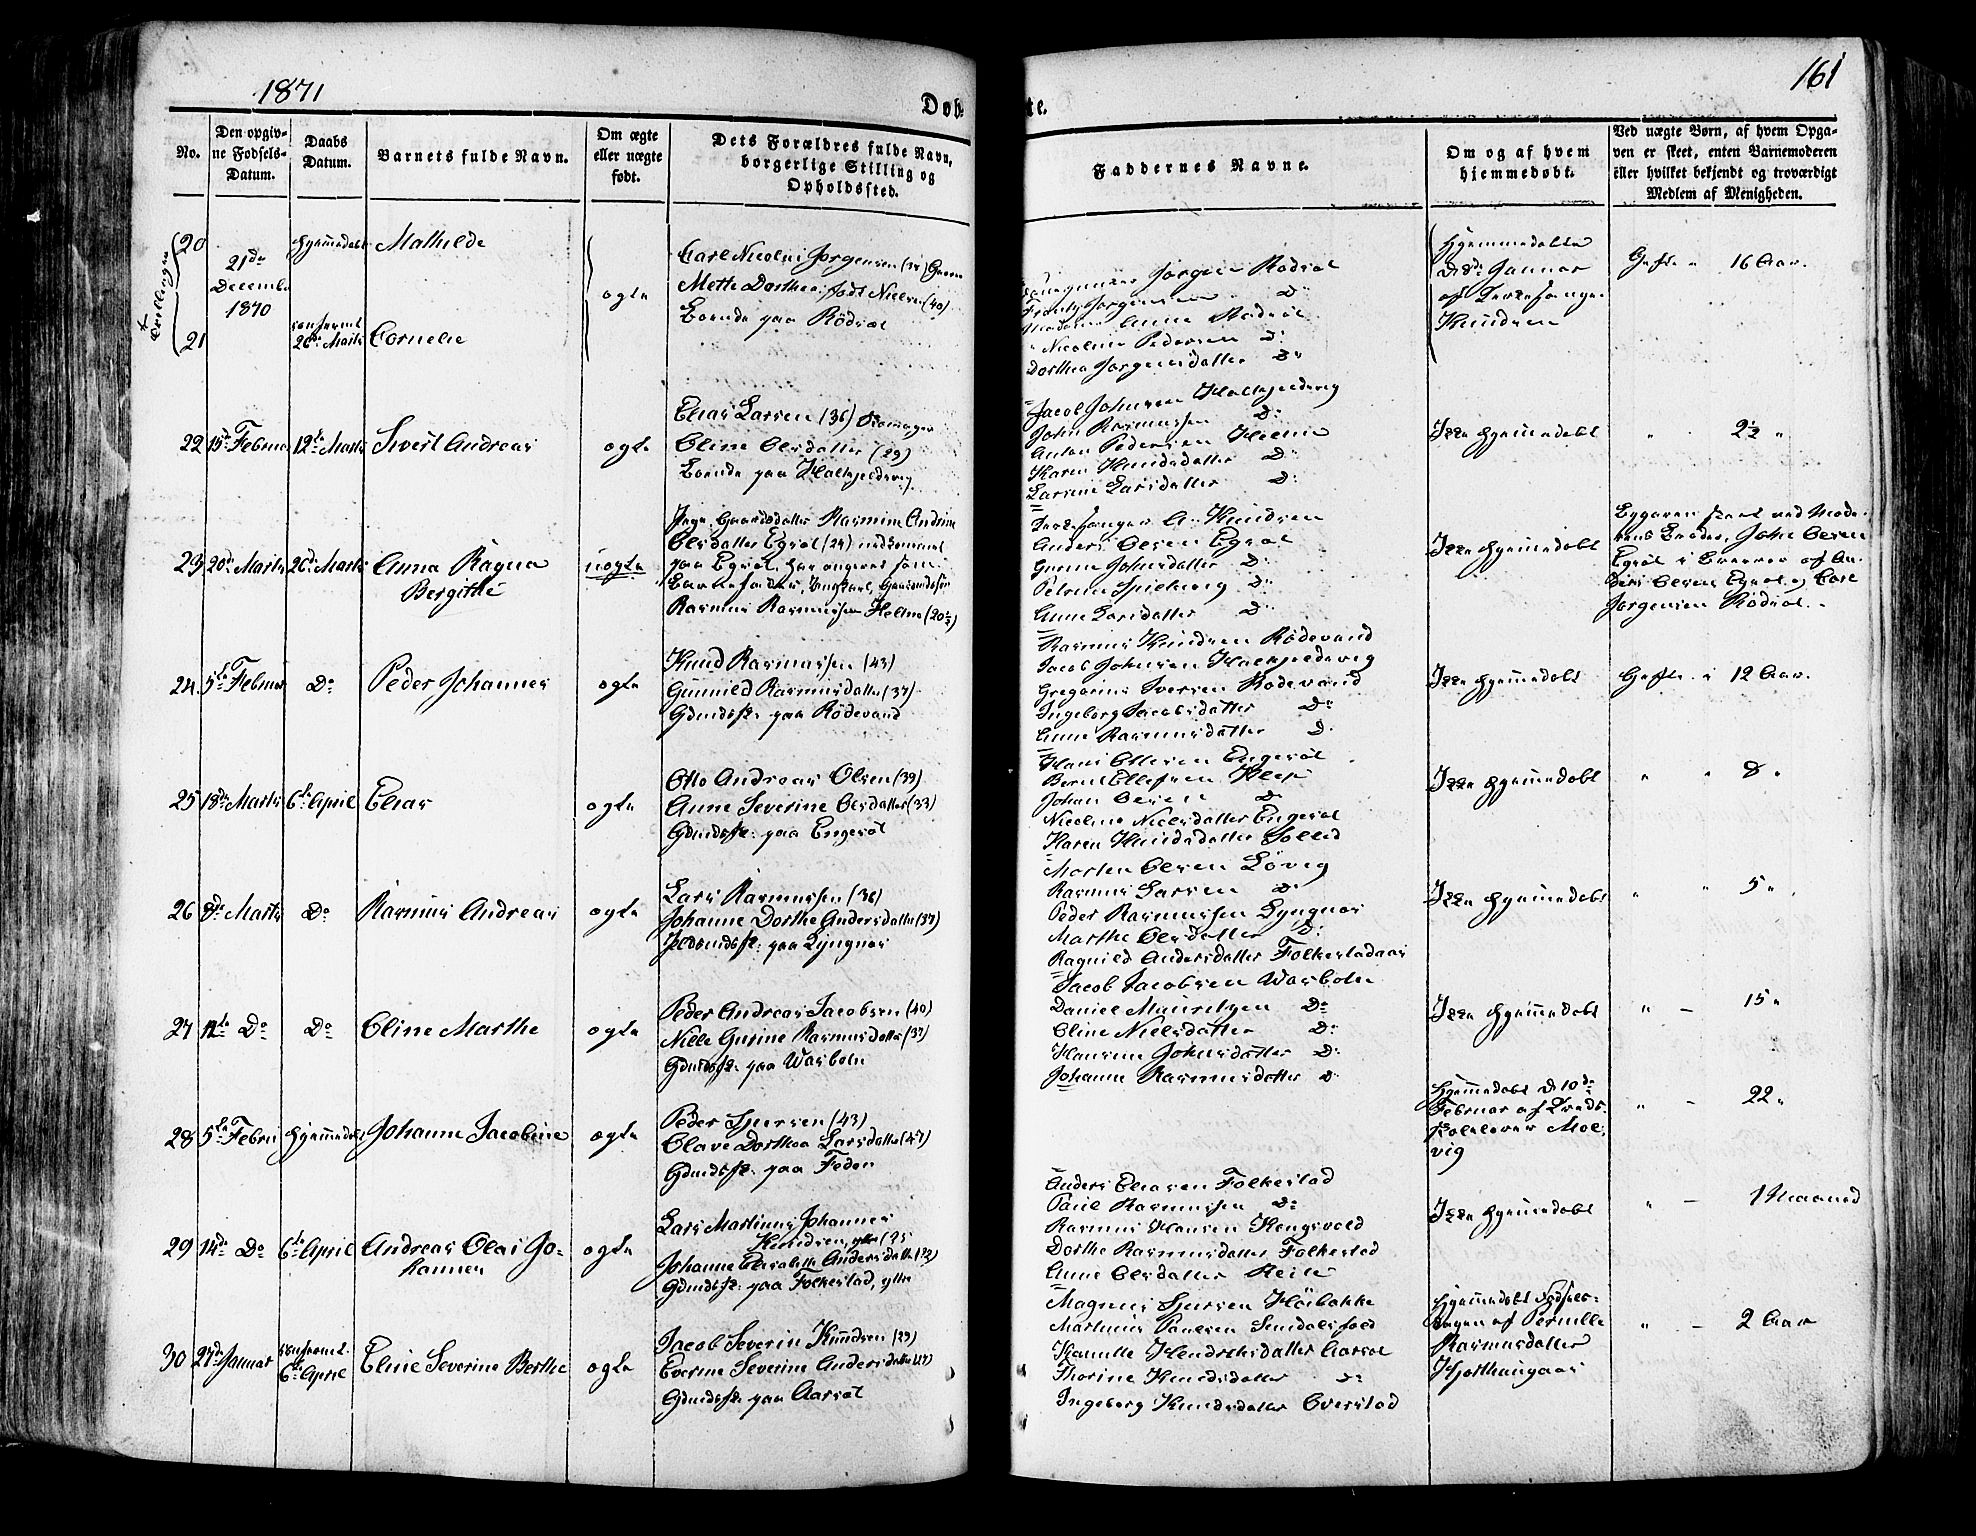 1871
161
Døb-
te.
No.
Den opgiv-
ne Fødsels-
Datum.
Daabs
Datum.
Barnets fulde Navn.
Om ægte
eller uægte
født.
Dets Forældres fulde Navn,
borgerlige Stilling og
Opholdssted.
Faddernes Navne.
Om og af hvem
hjemmedøbt.
Ved uægte Børn, af hvem Opga-
ven er skeet, enten Barnemoderen
eller hvilket bekjendt og troværdigt
Medlem af Menigheden.
Tvillinger
20
21de
Decembr
1870
hjemmedøbt
Mathilde
21
confirmt
26de Marts
Cornelie
ægte
Carl Nicolai Jørgensen
Mette Dorthea, født Nielsen (40)
Boende paa Rødsæt
Jørgen Rødsæt
Jørgensen Do
Anne Rødsæt
Nicoline Pedersen Do
Dorthea Jørgensdatter Do
Hjemmedøbte
Januar
af Kirkesanger
Knudsen
Gifte " 16 Aar.
22
15de Februar
12te Marts
Sivert Andreas
ægte
Elias Larsen (36)
Oline Olsdatter (29)
Boende paa Halkjeldsvig
Jacob Johnsen Halkjeldsvig
John Rasmussen Do
Anton Pedersen Helme
Karen Knudsdatter Do
Larsine Larsdatter Do
Ikke hjemmedøbt
" " 2½ "
23
20de Marts
26de Marts
Anna Ragna
Bergitthe
uægte
Pige, Gaardsdatter Rasmine Andrine
Olsdatter Egsæt (24) nedkommet
paa Egsæt, har angivet som
Barnefader, Ungkarl, Gaardmandssøn
Rasmus Rasmussen Helme (20½)
Kirkesanger A. Knudsen
Anders Olsen Egsæt
Gurine Johnsdatter Do
Petrine Do
Anne Larsdatter Do
Ikke hjemmedøbt
Opgaven skeet ved Mode-
rens Broder, John Olsen
Egsæt i Nærvær af An-
ders Olsen Egsæt og Carl
Jørgensen Rødsæt.
24
5te Februar
Do
Peder Johannes
ægte
Knud Rasmussen (43)
Gunnild Rasmusdatter (37)
Gdmdsfk: paa Rødevand
Rasmus Knudsen Rødevand
Jacob Johnsen Halkjeldsvig
Gregorius Iversen Rødevand
Ingeborg Jacobsdatter Do
Anne Rasmusdatter Do
Ikke hjemmedøbt
Gifte i 12 Aar.
25
18de Marts
6te April
Elias
ægte
Otto Andreas Olsen (39)
Anne Severine Olsdatter (33)
Gdmdsfk: paa Engesæt
Hans Ottesen Engesæt
Bernt Ellefsen Klep
Johan Olsen Do
Nicoline Nielsdatter Engesæt
Karen Knudsdatter Solled
Ikke hjemmedøbt
" " 8 "
26
8de Marts
Do
Rasmus Andreas
ægte
Lars Rasmussen (36)
Johanne Dorthe Andersdatter (37)
Pldsmdsfk: paa Lyngnæs
Morten Olsen Løvig
Rasmus Larsen Do
Peder Rasmussen Lyngnæs
Marthe Olsdatter Do
Ragnild Andersdatter Folkestadaas
Ikke hjemmedøbt
" " 5 "
27
12te Do
Do
Oline Marthe
ægte
Peder Andreas Jacobsen (40)
Nille Gurine Rasmusdatter (37)
Gdmdsfk: paa Wasbotn
Jacob Jacobsen Wasbotn
Daniel Mauritzen Do
Oline Nielsdatter Do
Hansine Johnsdatter Do
Johanne Rasmusdatter Do
Ikke hjemmedøbt
" – 15 "
28
5te Febru
hjemmedøbt
Johanne Jacobine
ægte
Peder Sjursen (43)
Olave Dorthea Larsdatter (47)
Gdmdsfk: paa Feden
Hjemmedøbt d 10de
Februar af Kreds-
skolelærer Mol-
vig
" – 22 "
29
14de Do
6te April
Andreas Olai Jo-
hannes
ægte
Lars Martinus Johannes
Knudsen, ytre (25
Johanne Elisabeth Andersdatter (22)
Gdmdsfk: paa Folkestad, ytre
Anders Eliassen Folkestad
Paul Rasmussen Do
Rasmus Hansen Kongsvold
Dorthe Rasmusdatter Folkestad
Anne Olsdatter Reite
Ikke hjemmedøbt
" – 1 Maaned
30
27de Januar
confirmt
6te April
Eline Severine Berthe
ægte
Jacob Severin Knudsen (29)
Everine Severine Andersdatter (27)
Gdmdsfk: paa Aarsæt
Magnus Sjursen Høibakke
Martinus Paulsen
Hendriksdatter Aarsæt
Thorine Knudsdatter Do
Ingeborg Knudsdatter Overstad
Hjemmedøbt Fødsels-
dagen af Pernille
Rasmusdatter
Hjorthaugaas
" – 2 Aar